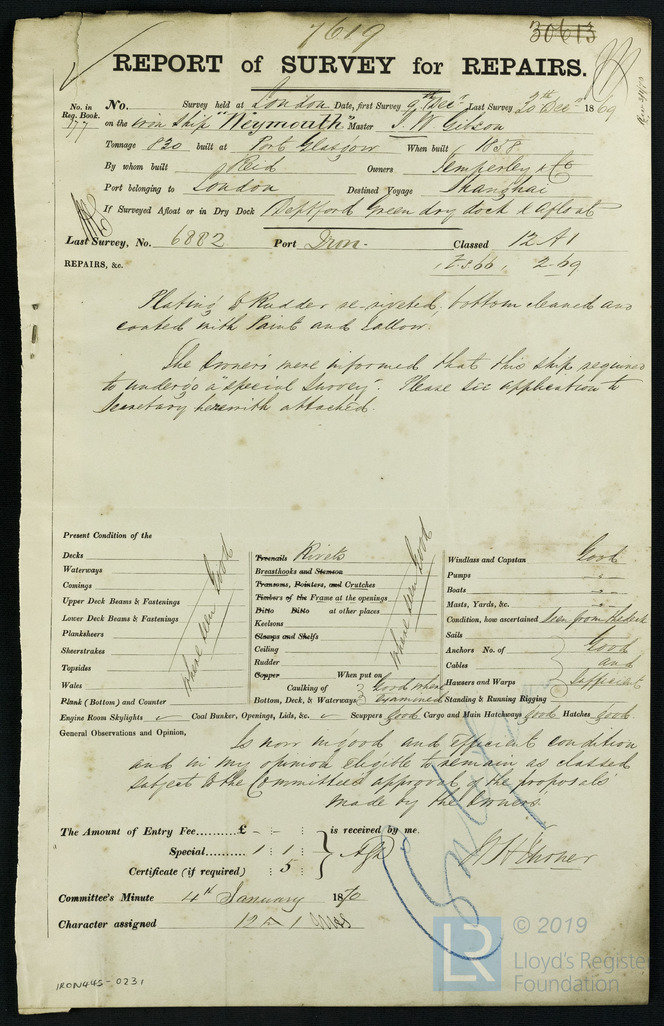 7619
30613
REPORT of SURVEY for REPAIRS.
No. in Reg. Book. 977
No. Survey held at London Date, first Survey 9th Decr Last Survey 20th Decr 1869
on the iron Ship "Weymouth" Master J. W. Gibson
Tonnage 830 built at Port Glasgow When built 1858
By whom built J Reid Owners Temperley & Co
Port belonging to London Destined Voyage Shanghai
If Surveyed Afloat or in Dry Dock Deptford Green dry dock & afloat
Last Survey, No. 6882 Port Iron. Classed 12 A1
REPAIRS, &c. 2-69
Plating & Rudder re-riveted, bottom cleaned and
coated with Paint and tallow.
The Owners were informed that this ship required
to undergo a "special Survey". Please see application to
Secretary herewith attached.
Present Condition of the
Decks
Waterways
Comings
Upper Deck Beams & Fastenings
Lower Deck Beams & Fastenings
Planksheers
Sheerstrakes
Topsides
Wales
Plank (Bottom) and Counter
where seen Good
Treenails Rivets
Breasthooks and Stemson
Transoms, Pointers, and Crutches
Timbers of the Frame at the openings
Ditto Ditto at other places
Keelsons
Clamps and Shelfs
Ceiling
Rudder
Copper When put on
Caulking of Bottom, Deck, & Waterways Good where examined
where seen Good
Windlass and Capstan Good
Pumps "
Boats "
Masts, Yards, &c. "
Condition, how ascertained Seen from the deck
Sails
Anchors No. of
Cables
Hawsers and Warps
Standing & Running Rigging
Good and Sufficient
Engine Room Skylights ✓ Coal Bunker, Openings, Lids, &c. ✓ Scuppers Good Cargo and Main Hatchways Good Hatches Good
General Observations and Opinion,
Is now in good and efficient condition
and in my opinion eligible to remain as classed
subject to the Committee's approval of the proposals
made by the Owners.
The Amount of Entry Fee.......... £ - : - : is received by me.
Special...... 1 : 1 :
Certificate (if required) : 5 :
Committee's Minute 4th January 1870
Character assigned 12 A 1
IRON445-0231
LR
© 2019
Lloyd's Register
Foundation